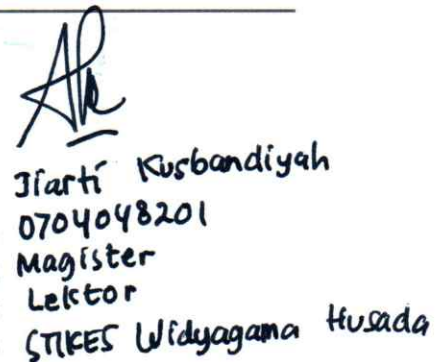 Jiarti Kusbandiyah
0704048201
Magister
Lektor
STIKES Widyagama Husada